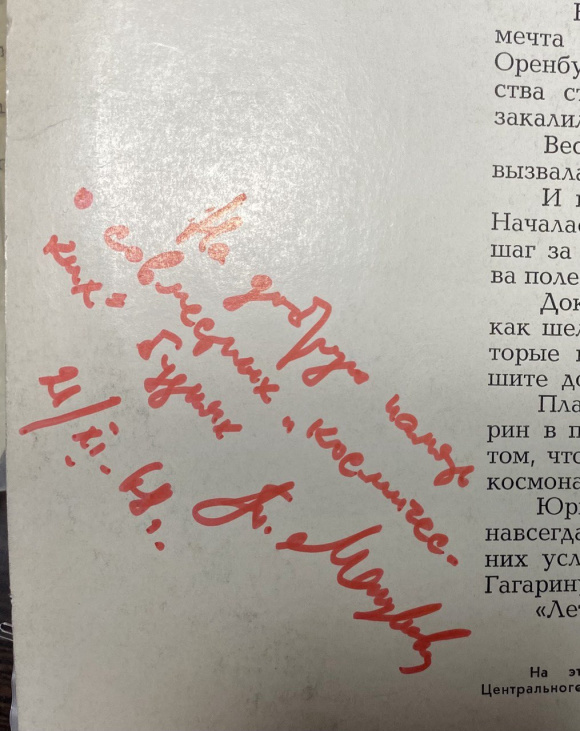 На добрую память
о совместных и космичес-
ких буднях
21/XI. 68 г.
мечта
Оренбу
ства ст
закалил
Вес
вызвала
И
Началас
шаг за
ва поле
Док
как шел
торые
шите до
Пла
рин в п
том, что
космона
Юри
навсегда
них усл
Гагарин
«Ле
На эт
Центрального